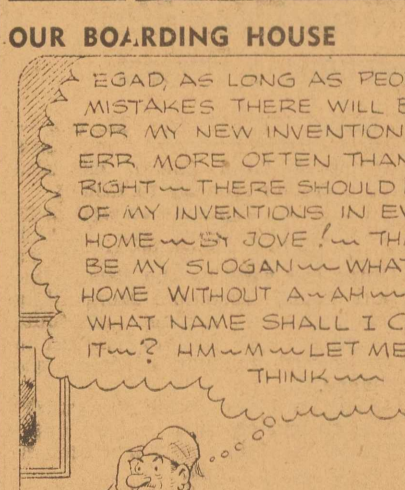 OUR BOARDING HOUSE
EGAD, AS LONG AS PEO
MISTAKES THERE WILL B
FOR MY NEW INVENTION
ERR MORE OFTEN THAN
RIGHT~~THERE SHOULD
OF MY INVENTIONS IN EV
HOME~~BY JOVE!~~ TH
BE MY SLOGAN~~WHAT
HOME WITHOUT A~AH~~
WHAT NAME SHALL I C
IT~~? HM~M~~LET ME
THINK~~